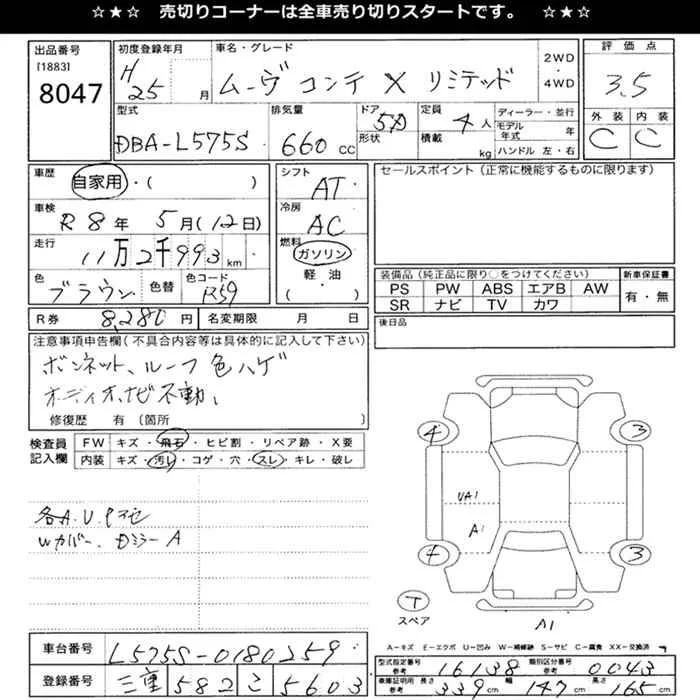 ☆★☆ 売切りコーナーは全車売り切りスタートです。 ☆★☆
出品番号
[1883]
8047
初度登録年月
H 25 月
車名・グレード
ムーヴ コンテ X リミテッド
2WD
・
4WD
評価点
3.5
外装 内装
C C
型式
DBA-L575S
排気量
660 CC
ドア 5D
形状
定員 4人
積載 kg
ディーラー・並行
モデル年式 年
ハンドル 左・右
車歴 自家用・( )
車検 R 8年 5月(12日)
走行 11万2千993 km
色 ブラウン 色替
色コード R59
シフト AT
冷房 AC
燃料 ガソリン・
軽・油
( )
セールスポイント(正常に機能するものに限ります)
装備品(純正品に限り○をつけてください)
PS PW ABS エアB AW
SR ナビ TV カワ
新車保証書
有・無
R券 8,280 円 名変期限 月 日
後日品
注意事項申告欄(不具合内容等は具体的に記入して下さい)
ボンネット、ルーフ色ハゲ
オーディオ、ナビ不動、
修復歴 有(箇所 )
検査員
記入欄
FW キズ・飛石・ヒビ割・リペア跡・X要
内装 キズ・汚レ・コゲ・穴・スレ・キレ・破レ
各A.U.P
Wカバー、Dミラー A
4 3
UA1
A1
4 3
T
スペア
A1
A-キズ E-エクボ U-凹み W-補修跡 S-サビ C-腐食 XX-交換済
車台番号 L575S-0180259
登録番号 三重 582 こ 5603
型式指定番号 参考 16138 類別区分番号 参考 0043
車庫証明用 参考 長さ 339 cm 幅 147 cm 高さ 165 cm